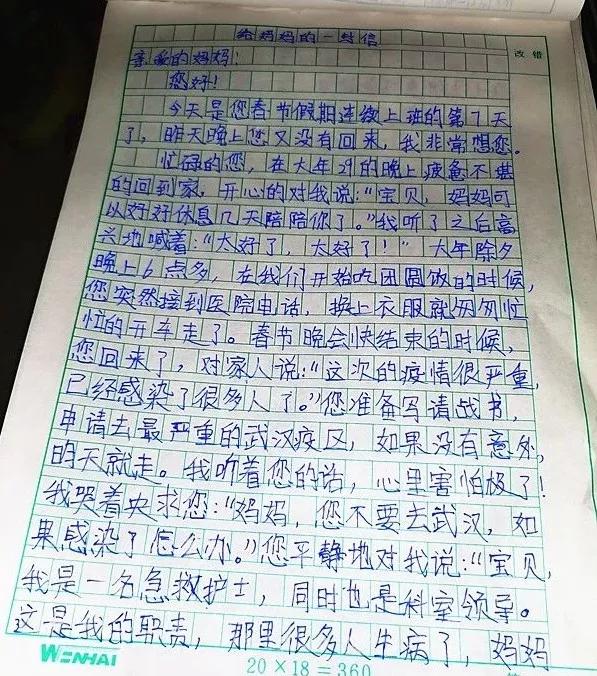 给妈妈的一封信
改 错
亲爱的妈妈：
您好！
今天是您春节假期连续上班的第7天
了，昨天晚上您又没有回来，我非常想您。
忙碌的您，在大年29的晚上疲惫不堪
的回到家，开心的对我说：“宝贝，妈妈可
以好好休息几天陪陪你了。”我听了之后高
兴地喊着：“太好了，太好了！”大年除夕
晚上6点多，在我们开始吃团圆饭的时候，
您突然接到医院电话，换上衣服就匆匆忙
忙的开车走了。春节晚会快结束的时候，
您回来了，对家人说：“这次的疫情很严重，
已经感染了很多人了。”您准备写请战书，
申请去最严重的武汉疫区，如果没有意外，
明天就走。我听着您的话，心里害怕极了！
我哭着央求您：“妈妈，您不要去武汉，如
果感染了怎么办。”您平静地对我说：“宝贝，
我是一名急救护士，同时也是科室领导。
这是我的职责，那里很多人生病了，妈妈
WENHAI
20×18=360